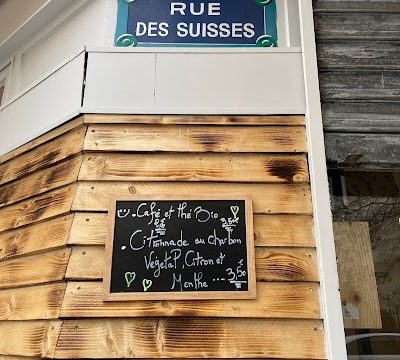 RUE
DES SUISSES
Café et thé Bio
Citronnade au charbon
Végétal, Citron et
Menthe .... 3,50